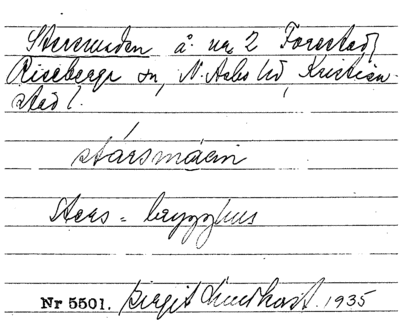 Stersmaden å nr 2 Forestad,
Riseberga sn, N. Åsbo hd, Kristian-
stad l.
stársmáen
Sters = brygghus
Nr 5501. Birgit Lundkvist. 1935